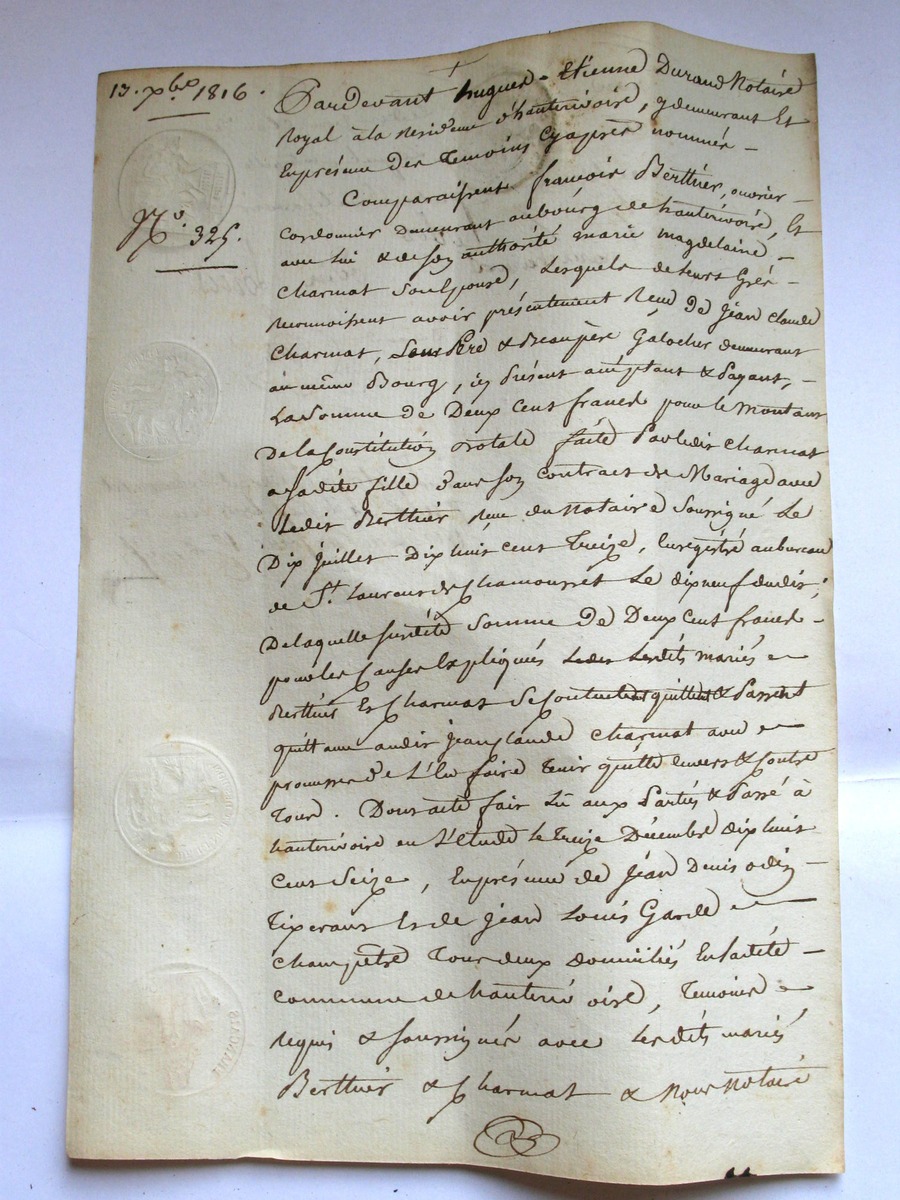 13. xbre 1816.
No. 325.
Pardevant hugues-Etienne Durand Notaire
Royal à la Residence d'hauterivoire, y demeurant Et
En présence des Temoins Cyaprès nommés –
Comparaissent françois Berthier, ouvrier –
Cordonnier Demeurant au bourg de hauterivoire, Et
avec Lui & de son authorité marie magdelaine –
Charmat Son Epouse, Lesquels de Leurs Grés –
Reconnoissent avoir présentement Reçu de Jean Claude
Charmat, Leur Père & Beaupère Galocher demeurant
au même Bourg, icy Présent acceptant & Payant, –
La Somme de Deux Cent francs pour le Montant
De la Constitution dotale faite Par ledit Charmat
a sadite fille Dans son Contrat de Mariage avec
Ledit Berthier Reçu du Notaire Soussigné Le
Dix Juillet Dix huit cent Treize, Enregistré au bureau
de St. Laurent de Chamousset Le dix neuf dudit;
De laquelle susdite Somme de Deux Cent francs –
pour les Causes Expliqués Lesdits mariés
Berthier Et Charmat Se Contentent quittent & Passent
quittance audit Jean Claude Charmat avec
promesse de L'En faire Tenir quitte envers & Contre
Tous. Dont acte fait Lu aux Parties & Passé à
hauterivoire en L'etude Le Treize Décembre dix huit
Cent Seize, En présence de Jean Denis –
Tixerant Et de Jean Louis Garde
Champêtre Tous deux domiciliés En ladite –
Commune de hauterivoire, Temoins
Requis & soussignés avec Lesdits mariés
Berthier & Charmat & Nous Notaire